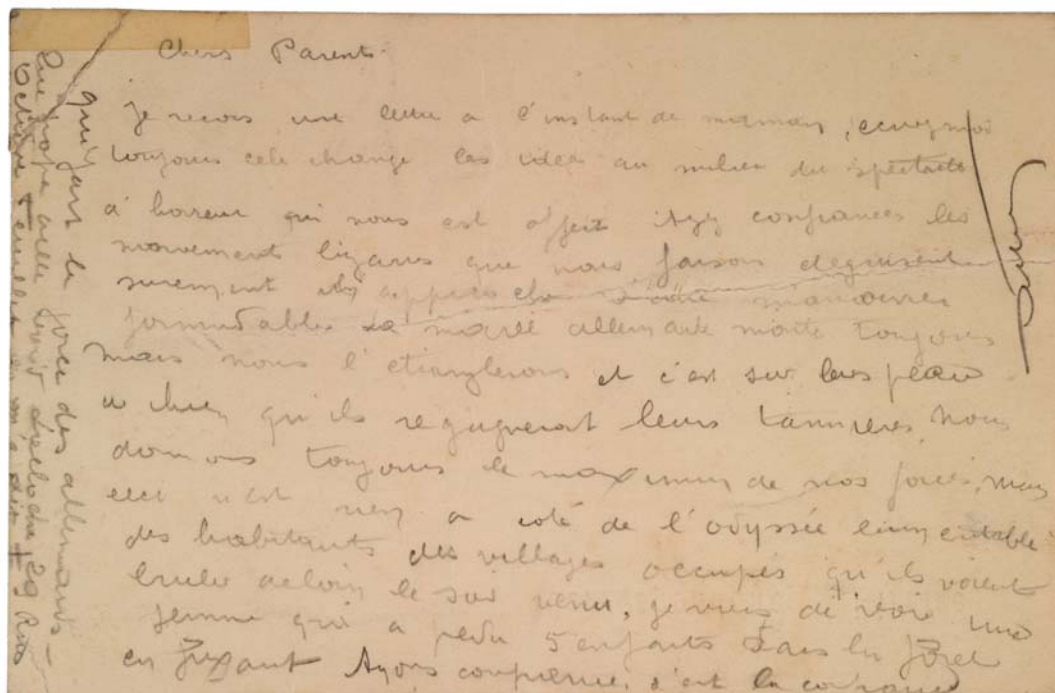 Chers Parents.
je recois une lettre a l'instant de maman, ecrivez moi
toujours cela change les idées au milieu du spectacle
d'horreur qui nous est offert Ayez confiances les
mouvements bizarres que nous faisons deguisent
surement
formidables la marée allemande monte toujours
mais nous l'etranglerons et c'est sur leurs peau
de chien qu'ils regagneront leurs tannieres, Nous
donnons toujours le maximum de nos forces, mais
ceci n'est rien a coté de l'odyssée lamentable
des habitants des villages occupés qu'ils voient
bruler au loin le soir venu, je viens de voir une
femme qui a perdu 5 enfants dans la foret
en fuyant Ayons confiance, c'est la confiance
qui fait la force des allemands -
Que papa aille 29 Rue